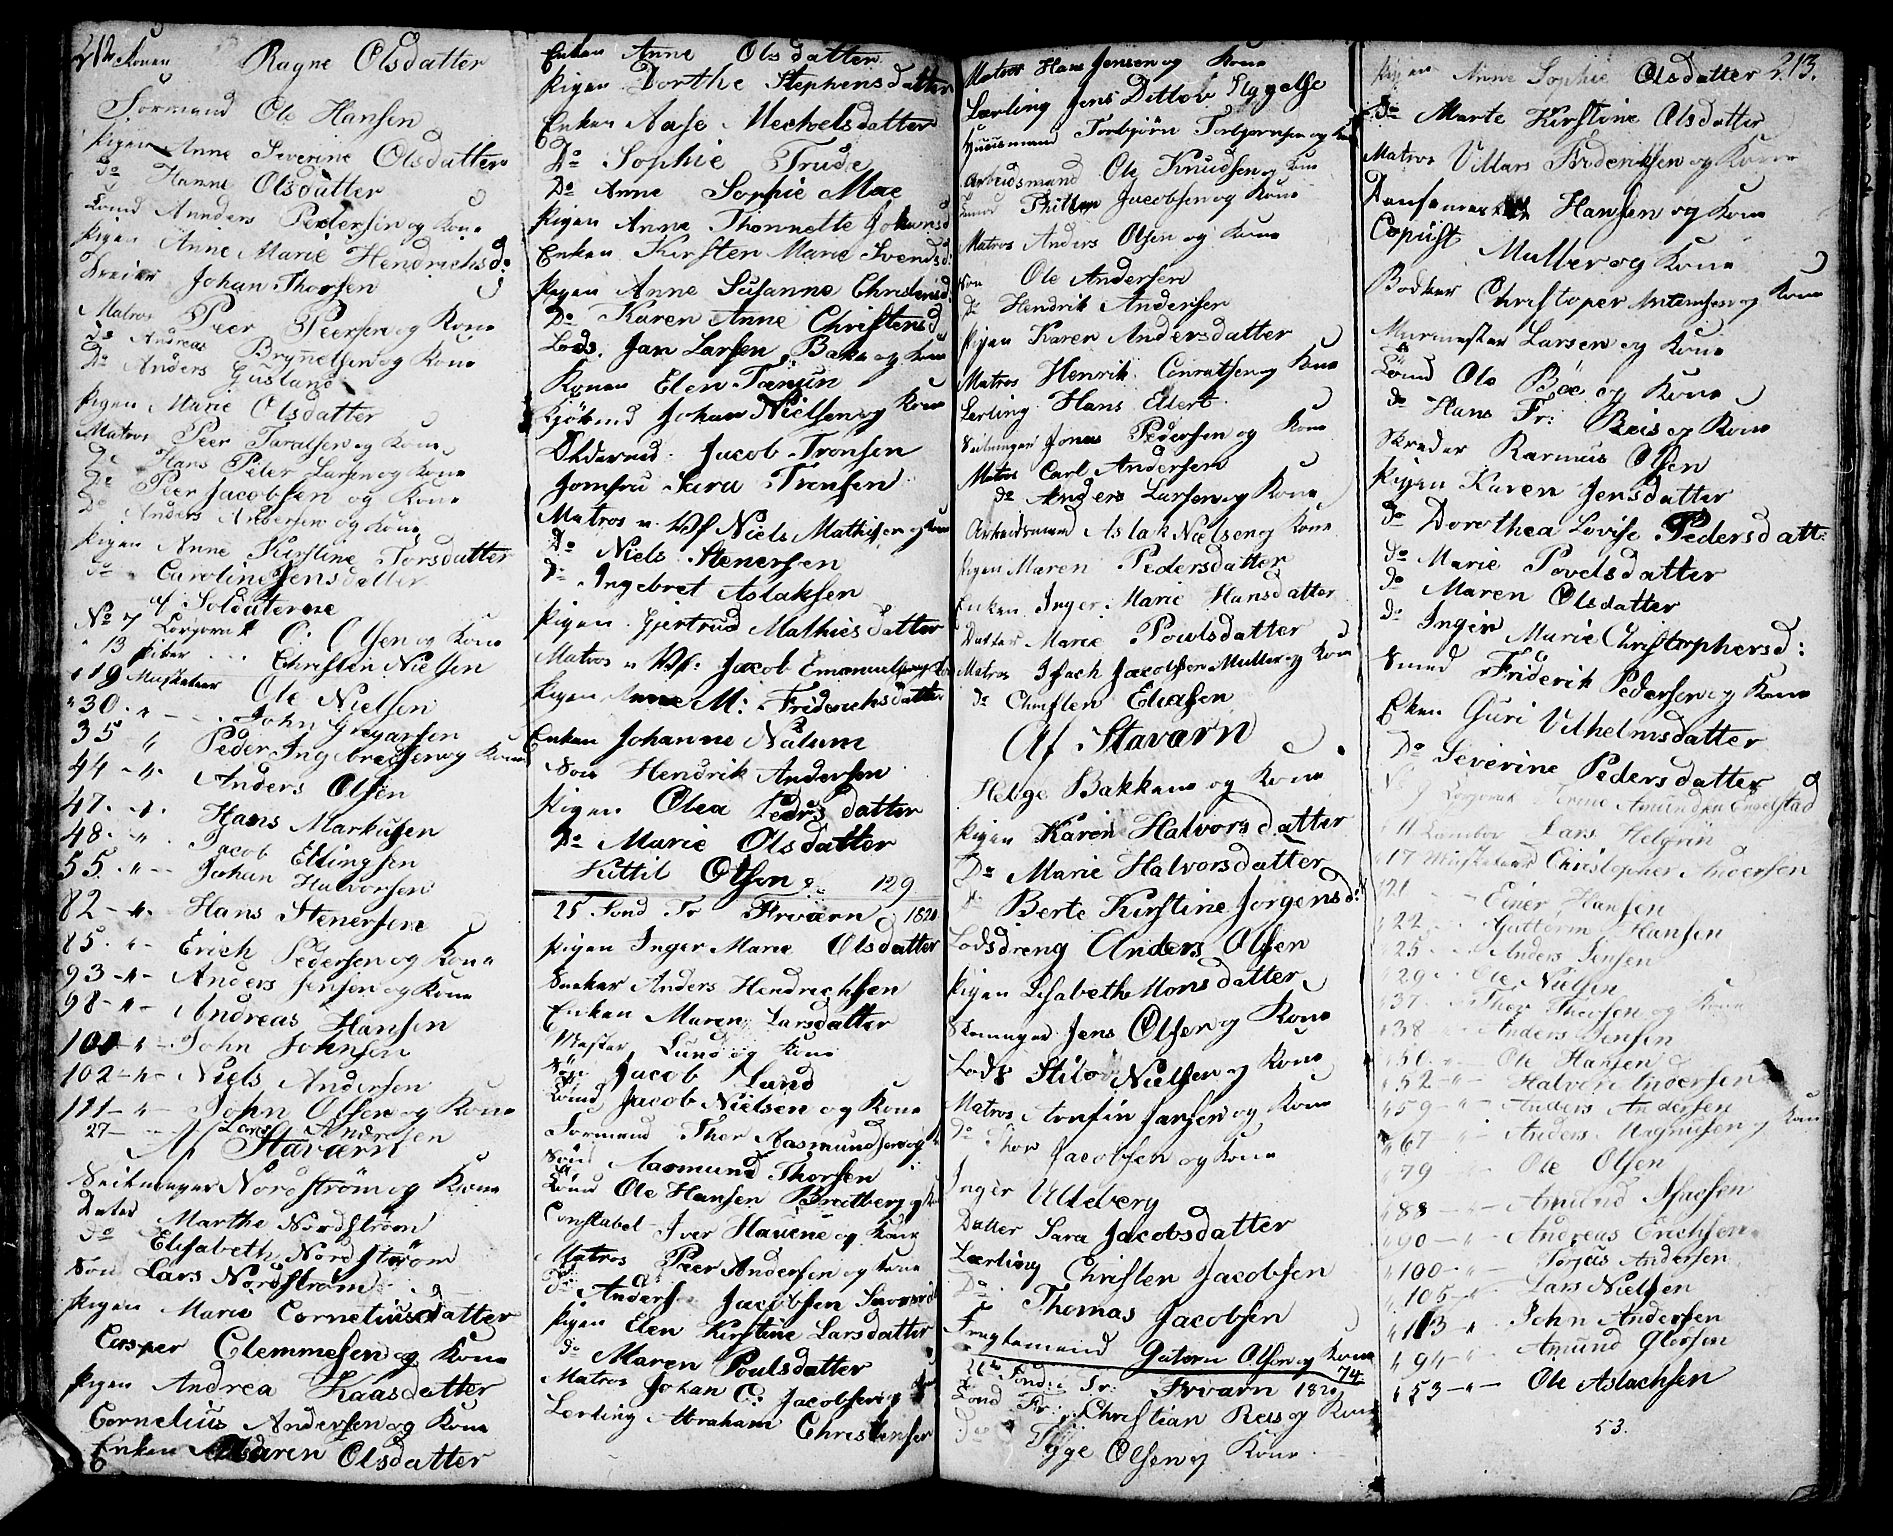 212 Konen Ragne Olsdatter
Formand Ole Hansen
Pigen Anne Severine Olsdatter
Do Hanne Olsdatter
Lomd Annders Pedersen og Kone
Pigen Anne Marie Hendrichsd:
Dreier Johan Thorsen
Matros Peer Peersen og Kone
Do Andreas Brynelsen og Kone
Do Anders Gusland
Pigen Marie Olsdatter
Matros Peer Taralsen og Kone
Do Hans Peter Larsen og Kone
Do Peer Jacobsen og Kone
Do Anders Andersen og Kone
Pigen Anne Kirstine Torsdatter
Do Caroline Jensdatter
af Soldaterne
No 7 Corporal O: Olsen og Kone
" 13 Piber Christen Nielsen
" 19 Musketeer Ole Nielsen
" 30 - " - John Gregersen
35 " Peder Ingebretsen og Kone
44 - " - Anders Olsen
47. - " - Hans Markusen
48. " - Jacob Ellingsen
55. " - Johan Halvorsen
82 - " - Hans Stenersen
85. " - Erich Pedersen og Kone
93 - " - Anders Jensen og Kone
98 - " - Andreas Hansen
101 - " - John Johnsen
102 - " - Niels Andersen
111 - " - John Olsen og Kone
27 - Lars Andersen
Af Staværn
Nordstrøm og Kone
Datter Marthe Nordstrøm
Do Elisabeth Nordstrøm
Søn Lars Nordstrøm
Pigen Marie Corneliusdatter
Casper Clemmesen og Kone
Pigen Andrea Kaasdatter
Cornelius Andersen og Kone
Enken Maren Olsdatter
Enken Anne Olsdatter
Pigen Dorthe Stephensdatter
Enken Aase Mechelsdatter
Do Sophie Trude
Do Anne Sophie Moe
Pigen Anne Thonnette Johansd
Enken Kirsten Marie Svendsd:
Pigen Anne Susanne Christensd
Do Karen Anne Christensd
Lods. Jan Larsen Bake og Kone
Konen Elen
Johan Nielsen og Kone
Oldermd. Jacob Tronsen
Jomfru Sara Tronsen
Matros v. Vf Niels Mathisen og Kone
Do Niels Stenersen
Do Ingebret Aslaksen
Pigen Gjertrud Mathiesdatter
Matros v Vf: Jacob Emanuelsen og Kone
Pigen Anne M: Friderichsdatter
Enken Johanne Nalum
Søn Hendrik Andersen
Pigen Olea Pedersdatter
Do Marie Olsdatter
Kittil Olsen 129
25 Sond Tr Frværn 1820
Pigen Inger Marie Olsdatter
Snekker Anders Hendrichsen
Enken Maren Larsdatter
Mester Lund og Kone
Søn Jacob Lund
Lomd Jacob Nielsen og Kone
Formand Thor Aasmundsen og K
Søn Aasmund Thorsen
Lomd Ole Hansen Bratberg og K
Constabel Iver Havene og Kone
Matros Peer Andersen og Kone
Do Anders Jacobsen
Pigen Elen Kirstine Larsdatter
Do Maren Poulsdatter
Matros Johan C: Jacobsen og Kone
Lerling Abraham Christensen
Matros Hans Jensen og Kone
Lærling Jens Ditlev Hyggelse
Huusmand Torbjørn Torbjørnsen og Kone
Arbeidsmand Ole Knudsen og Kone
Lomd Phillip Jacobsen og Kone
Matros Anders Olsen og Kone
Søn Ole Andersen
Do Hendrik Andersen
Pigen Karen Andersdatter
Matros Henrik Conratsen og Kone
Lerling Hans Edert
Jonas Pedersen og Kone
Matros Carl Andersen
do Anders Larsen og Kone
Arbeidsmand Aslak Nielsen og Kone
Pigen Maren Pedersdatter
Enken Inger Marie Hansdatter
Datter Marie Powlsdatter
Matros Isach Jacobsen Muller og Kone
do Christen Eliasen
Af Staværn
Helge Bakkene og Kone
Pigen Karen Halvorsdatter
Do Marie Halvorsdatter
Do Berte Kirstine Jørgensd:
Lodsdreng Anders Olsen
Pigen Lisabeth Monsdatter
Jens Olsen og Kone
Lods Nielsen og Kone
Matros Arnfin Jansen og Kone
Do Thor Jacobsen og Kone
Inger Uleberg
Datter Sara Jacobsdatter
Lærling Christen Jacobsen
Do Thomas Jacobsen
Fragtemand Gutorm Olsen og Kone
74
26de Sond: Tr: Frværn 1820
Lomd Fr: Christian Reis og Kone
Do Tygge Olsen og Kone
Pigen Anne Sophie Olsdatter 213.
Do Marte Kirstine Olsdatter
Matros Villars Frideriksen og Kone
Hansen og Kone
Copiist Muller og Kone
Bødker Christoper Mortensen og Kone
Murmester Larsen og Kone
Lomd Ole Bøe og Kone
do Hans Fr: Reis og Kone
Skreder Rasmus Olsen
Pigen Karen Jensdatter
Do Dorothea Lovise Pedersdatt:
Do Marie Povelsdatter
do Maren Olsdatter
do Inger Marie Christophersd:
Smed Friderik Pedersen og Kone
Eken Guri Vilhelmsdatter
Do Severine Pedersdatter
No 7 Corporal Arne Amundsen Engelstad
" 11 Tambor Lars Helgrin
" 17 Musketeer Christopher Andersen
" 21 - - Einer Hansen
" 22 - Guttorm Hansen
" 25 - " Anders Jensen
" 29 - " Ole Nielsen
" 37 - " Thor Theosen og Kone
" 38 " - Anders Jensen
" 50. - " - Ole Hansen
" 52 - " - Halvor Andersen
" 59 - " - Anders Andersen
" 67 - " - Anders Magnusen og Kone
" 79 " - Ole Olsen
" 88 - " - Amund Isacsen
" 90 - " - Andreas Erichsen
" 100 - " - Torjus Andersen
" 105 - " - Lars Nielsen
" 113 - " - John Andersen
" 94 - " - Amund Olorsen
" 53 - " - Ole Aslachsen
53.